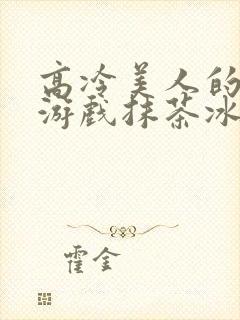 高冷美人的
游戏抹茶冰
霍金